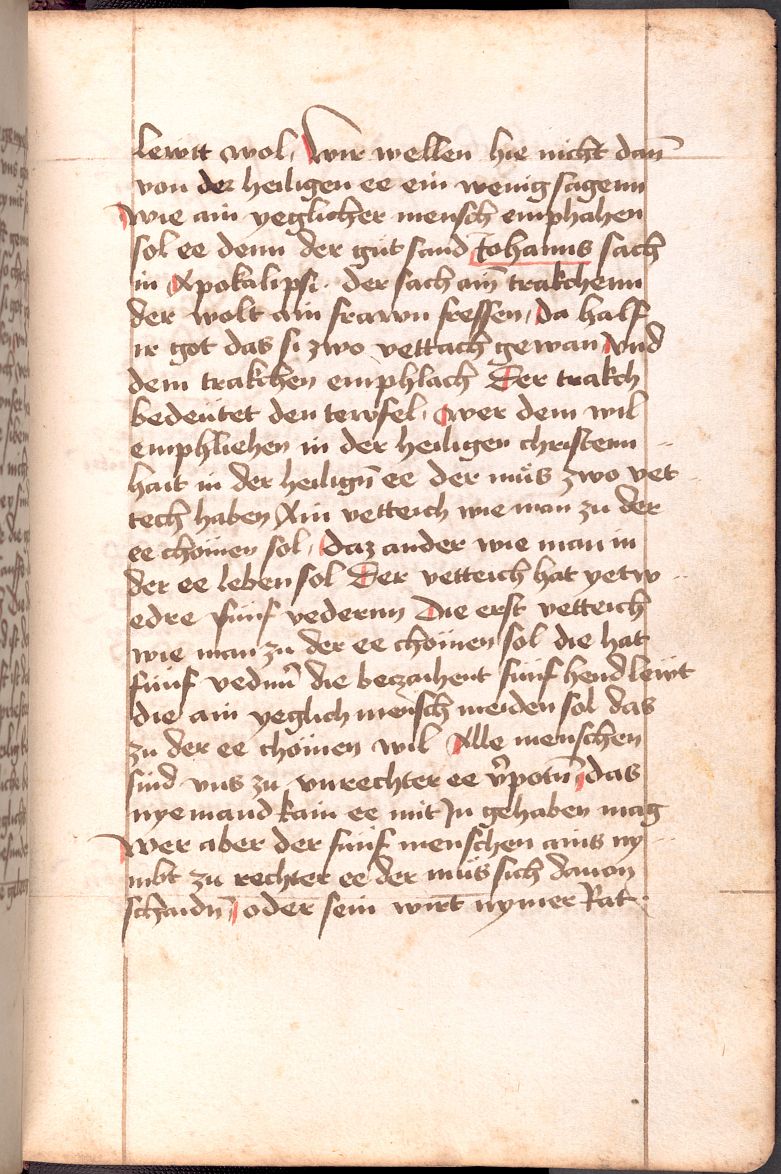 lewtt wol, wir wellen hie nicht dan̄
von der heiligen ee ein wenig sagenn
wie ain yeglicher mensch emphahen
sol ee denn der gůt sand Johanns sach
in Apokalipsi. der sach ain̄ trakchenn
der wolt ain frawn fressen, da half
ir got das si zwo vettach gewan vnd
dem trakchen emphlach Der trakch
bedeütet den tewfel, wer dem wil
emphliehen in der heiligen christenn
hait in der heilign̄ ee der můs zwo vet
tech haben Ain vetteich wie man zu der
ee chömen sol, daz ander wie man in
der ee leben sol Der vetteich hat yetw
edre fünf vedernn Die erst vetteich
wie man zu der ee chömen sol die hat
fünf vedrn̄ die beczaihent fünf hend lewt
die ain yeglich mensch meiden sol das
zu der ee chömen wil Alle menschen
sind vns zu vnrechter ee v̄potn̄, das
nyemand kain ee mit In gehaben mag
wer aber der fünf menschen ains ny
mbt zu rechter ee der můs sich dauon
schaidn̄, oder sein wirt nymer Rat.